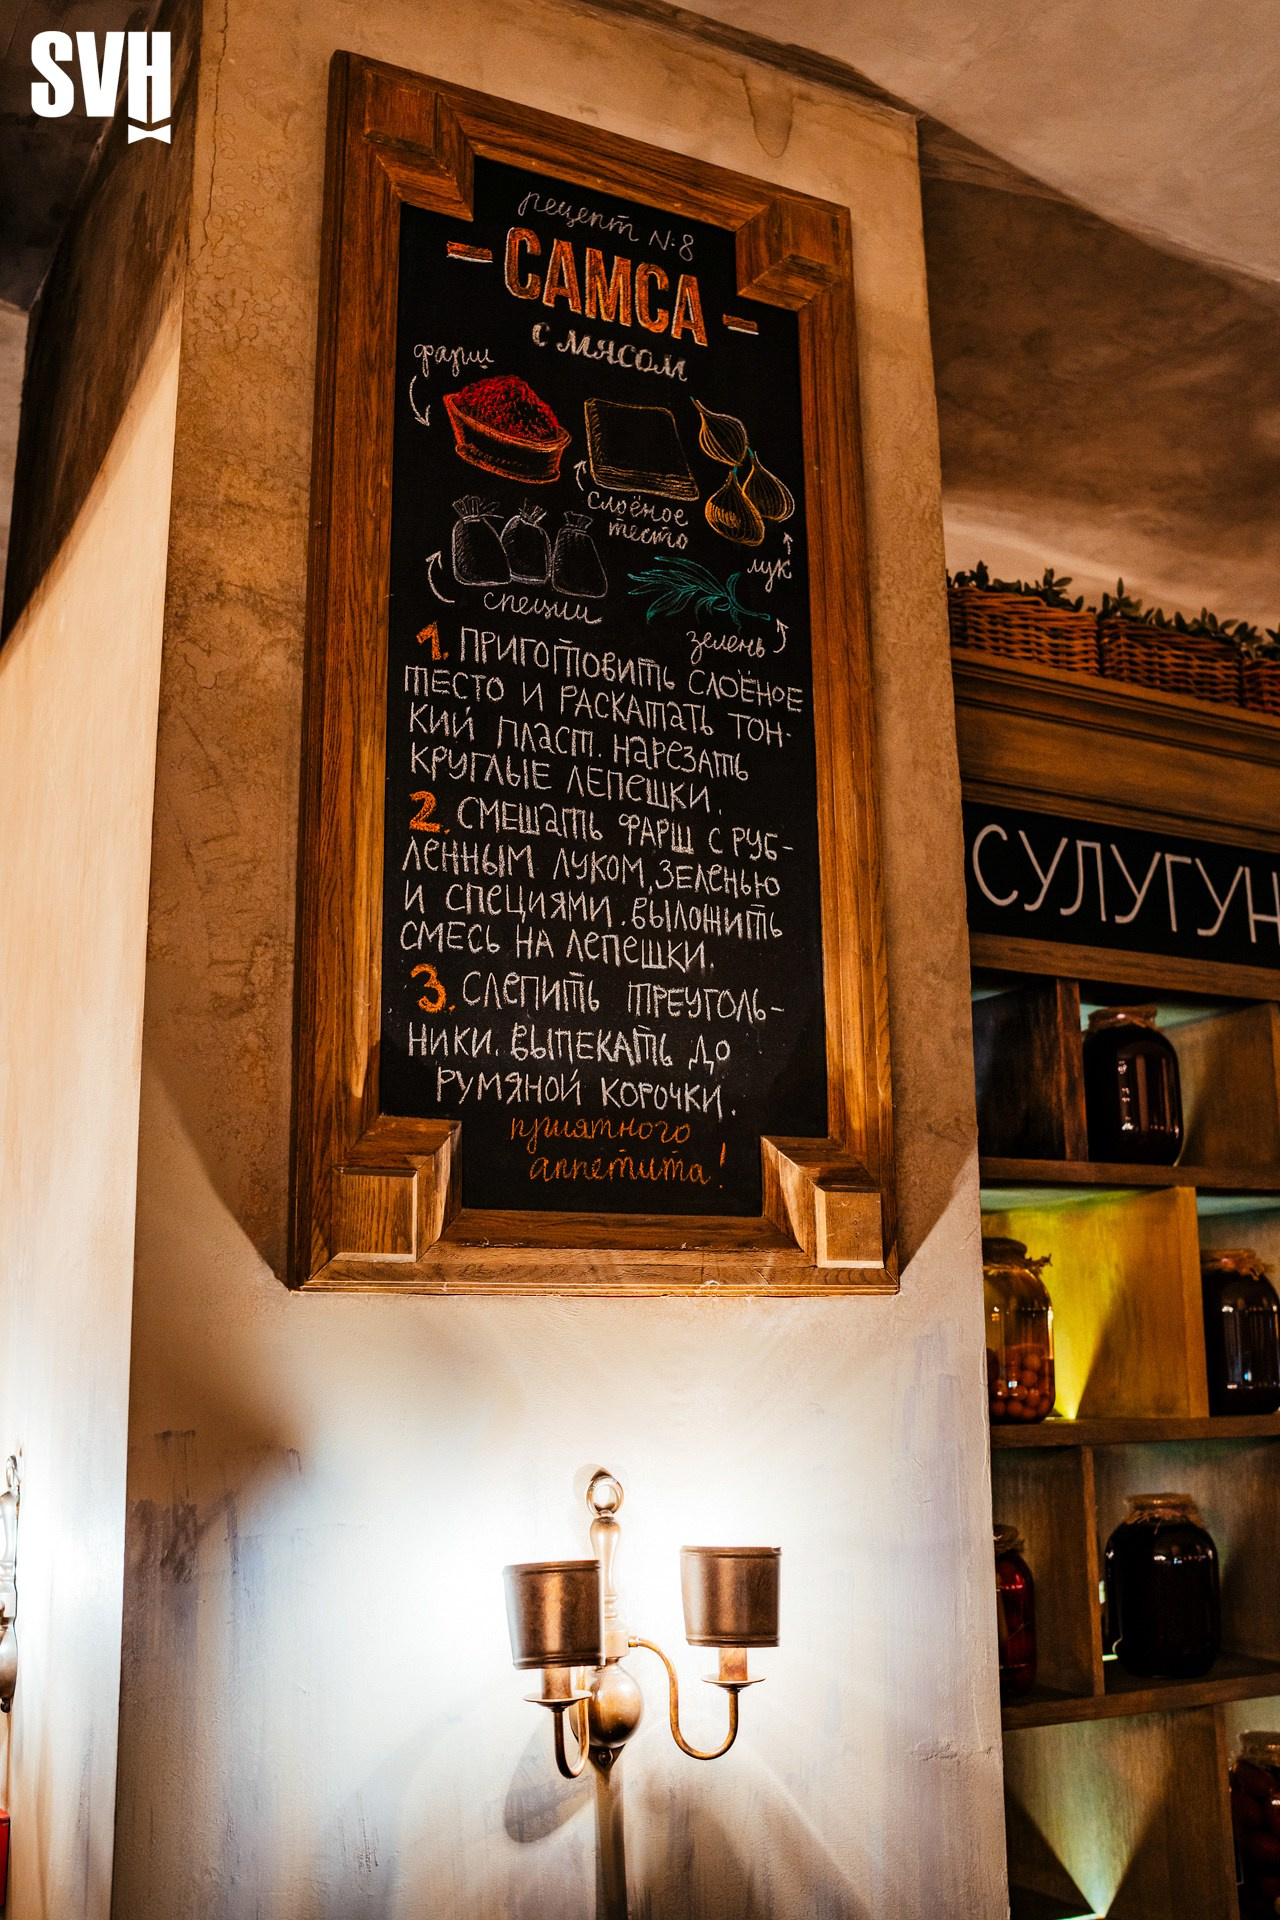 SVH
рецепт №8
- САМСА -
с мясом
фарш
слоёное
тесто
лук
специи
зелень
1. ПРИГОТОВИТЬ СЛОЁНОЕ
ТЕСТО И РАСКАТАТЬ ТОН-
КИЙ ПЛАСТ. НАРЕЗАТЬ
КРУГЛЫЕ ЛЕПЕШКИ.
2. СМЕШАТЬ ФАРШ С РУБ-
ЛЕННЫМ ЛУКОМ, ЗЕЛЕНЬЮ
И СПЕЦИЯМИ. ВЫЛОЖИТЬ
СМЕСЬ НА ЛЕПЕШКИ.
3. СЛЕПИТЬ ТРЕУГОЛЬ-
НИКИ. ВЫПЕКАТЬ ДО
РУМЯНОЙ КОРОЧКИ.
приятного
аппетита!
СУЛУГУН